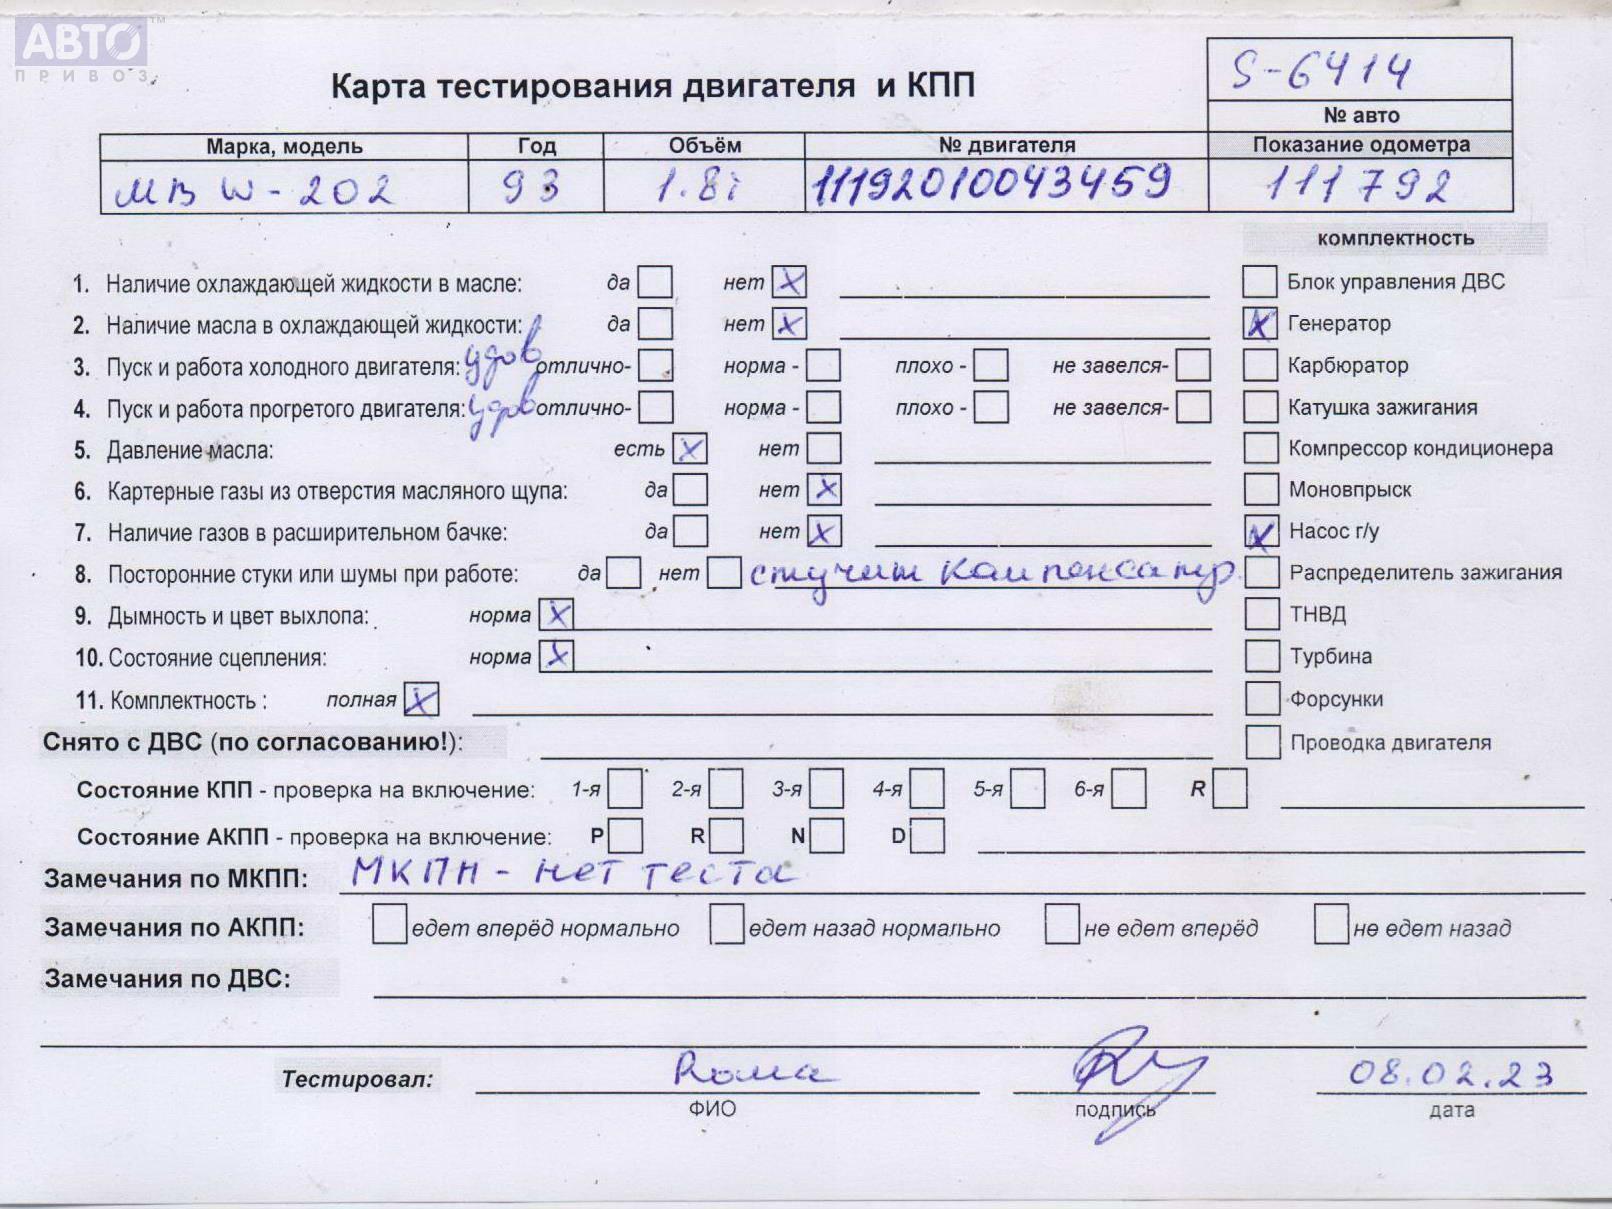 АВТО ™
ПРИВОЗ
Карта тестирования двигателя и КПП
S-6414
№ авто
Марка, модель Год Объём № двигателя Показание одометра
МВ W-202 93 1.8i 11192010043459 111792
комплектность
1. Наличие охлаждающей жидкости в масле: да нет X Блок управления ДВС
2. Наличие масла в охлаждающей жидкости: да нет X X Генератор
3. Пуск и работа холодного двигателя: удов отлично- норма - плохо - не завелся- Карбюратор
4. Пуск и работа прогретого двигателя: удов отлично- норма - плохо - не завелся- Катушка зажигания
5. Давление масла: есть X нет Компрессор кондиционера
6. Картерные газы из отверстия масляного щупа: да нет X Моновпрыск
7. Наличие газов в расширительном бачке: да нет X X Насос г/у
8. Посторонние стуки или шумы при работе: да нет стучит компенсатр Распределитель зажигания
9. Дымность и цвет выхлопа: норма X ТНВД
10. Состояние сцепления: норма X Турбина
11. Комплектность : полная X Форсунки
Снято с ДВС (по согласованию!): Проводка двигателя
Состояние КПП - проверка на включение: 1-я 2-я 3-я 4-я 5-я 6-я R
Состояние АКПП - проверка на включение: P R N D
Замечания по МКПП: МКПП - нет теста
Замечания по АКПП: едет вперёд нормально едет назад нормально не едет вперёд не едет назад
Замечания по ДВС:
Тестировал: Рома 08.02.23
ФИО подпись дата